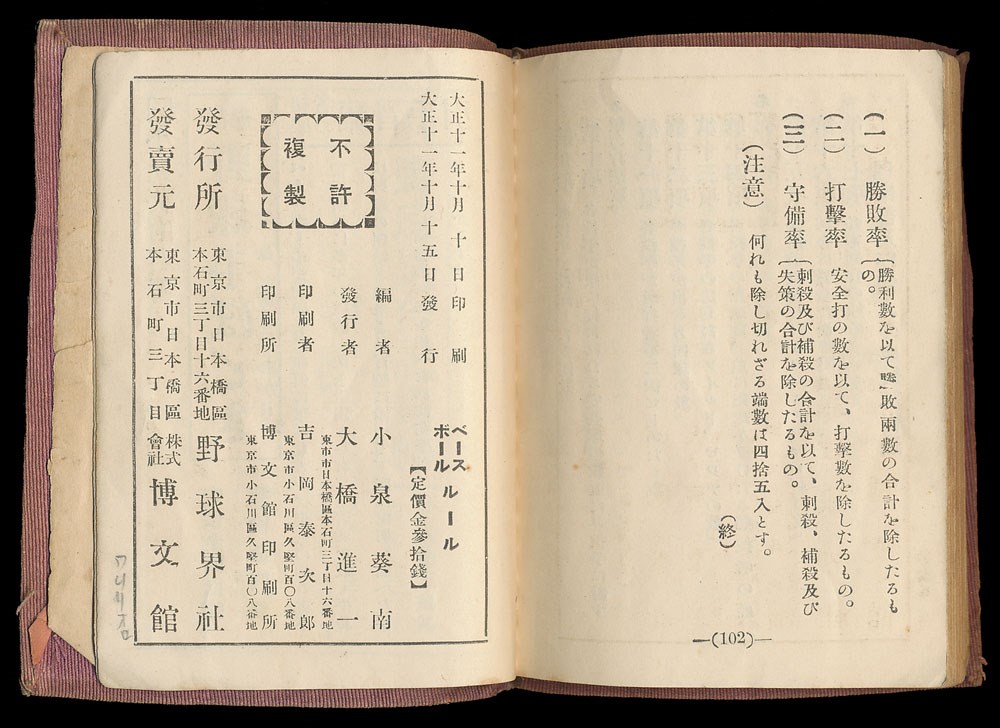 (一) 勝敗率 勝利數を以て勝敗兩數の合計を除したるもの。
(二) 打擊率 安全打の數を以て、打擊數を除したるもの。
(三) 守備率 刺殺及び補殺の合計を以て、刺殺、補殺及び失策の合計を除したるもの。
(注意) 何れも除し切れざる端數は四捨五入とす。
(終)
—(102)—
大正十一年十月十日印刷
大正十一年十月十五日發行
ベースボールルール
【定價金參拾錢】
不許複製
編者 小泉葵南
東市市日本橋區本石町三丁目十六番地
發行者 大橋進一
東京市小石川區久堅町百〇八番地
印刷者 吉岡泰次郎
東京市小石川區久堅町百〇八番地
印刷所 博文館印刷所
發行所 東京市日本橋區本石町三丁目十六番地 野球界社
發賣元 東京市日本橋區本石町三丁目 株式會社 博文館